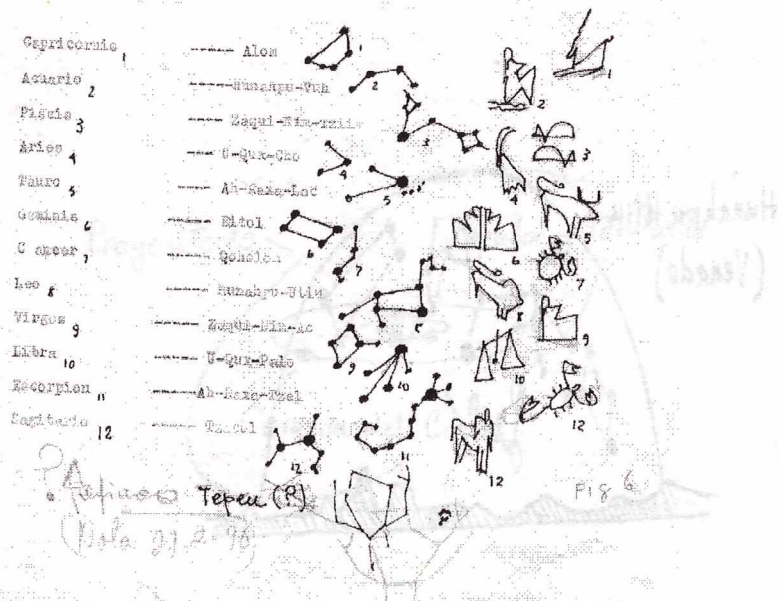 Capricornio 1 ----- Alom 1
Acuario 2 ----- Hunahpu-Vuh 2
Piscis 3 ----- Zaqui-Nim-Tziis 3
Aries 4 ----- U-Qux-Cho 4
Tauro 5 ----- Ah-Raxa-Lac 5
Geminis 6 ----- Bitol 6
C ancer 7 ----- Qoholom 7
Leo 8 ----- Hunahpu-Utiu 8
Virgos 9 ----- Zaqui-Nim-Ac 9
Libra 10 ----- U-Qux-Palo 10
Escorpion 11 ----- Ah-Raxa-Tzel 11
Sagitario 12 ----- Tzacol 12
1
2
3
4
5
6
7
8
9
10
12
12
? Tepeu (?)
Fig 6
(Nota 27-2-96)
Hunahpu Utiu
(Venado)